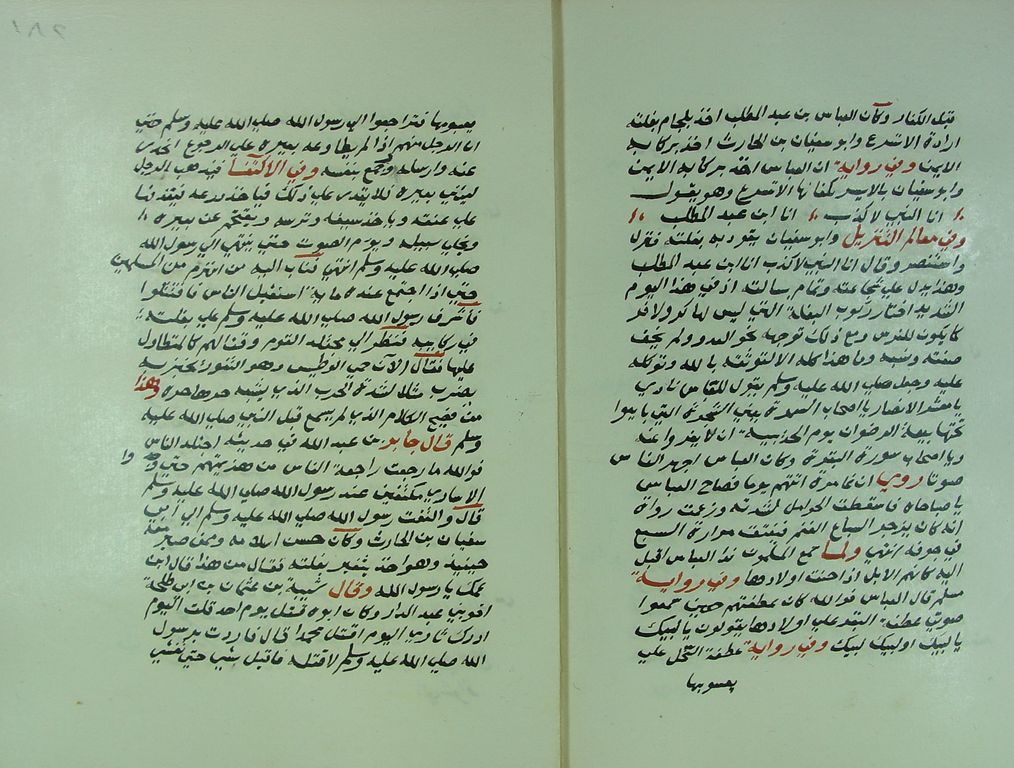 قبل الكفار وكان العباس بن عبد المطلب اخذ بلجام بغلته
ارادة الا تسرع وابو سفيان بن الحارث اخذ بركابه
الايمن وفي رواية ان العباس اخذ بركابه الايمن
وابو سفيان بالايسر يكفانها الا تسرع وهو يقول
انا النبي لا كذب انا ابن عبد المطلب
وفي معالم التنزيل وابو سفيان يقود به بغلته فنزل
واستنصر وقال انا النبي لا كذب انا ابن عبد المطلب
وهذا يدل على شجاعته وتمام بسالته اذ في هذا اليوم
الشديد اختار ركوب البغلة التي ليس لها كر ولا فر
كما يكون للفرس ومع ذلك توجه نحو العدو ولم يخف
صفته ونسبه وما هذا كله الا لوثوقه بالله وتوكله
عليه وجعل صلى الله عليه وسلم يقول للعباس نادي
يا معشر الانصار يا اصحاب السمرة يعني الشجرة التي بايعوا
تحتها بيعة الرضوان يوم الحديبية ان لا يفروا عنه
ويا اصحاب سورة البقرة وكان العباس اجهر الناس
صوتا روي ان غارة اتتهم يوما فصاح العباس
يا صباحاه فاسقطت الحوامل لشدته وزعمت رواة
انه كان يزجر السباع الغنم فيفتق مرارة السبع
في جوفه انتهى ولما سمع المسلمون ندا العباس اقبل
اليه كانهم الابل اذا حنت اولادها وفي رواية
مسلم قال العباس فوالله كان عطفتهم حين سمعوا
صوتي عطفة البقر على اولادها يقولون يا لبيك
يا لبيك او لبيك لبيك وفي رواية عطفة النحل على
يعسوبها
يعسوبها فتراجعوا الى رسول الله صلى الله عليه وسلم حتى
ان الرجل منهم اذا لم يطاوعه بعيره على الرجوع انحدر
عنه وارسله ورجع بنفسه وفي الاكتفا فيذهب الرجل
ليثني بعيره فلا يقدر على ذلك فياخذ درعه فيقذفها
على عنقه وياخذ سيفه وترسه ويقتحم عن بعيره
ويخلي سبيله ويوم الصوت حتى ينتهي الى رسول الله
صلى الله عليه وسلم انتهى فثاب اليه من انهزم من المسلمين
حتى اذا اجتمع عنده ماية استقبل الناس فاقتتلوا
فاشرف رسول الله صلى الله عليه وسلم على بغلته
في ركابيه فنظر الى مجتلد القوم وقتالهم كالمتطاول
عليها فقال الان حمي الوطيس وهو التنور يخبز فيه
يضرب مثلا لشدة الحرب الذي يشبه حرها حره وهذا
من فصيح الكلام الذي لم يسمع قبل النبي صلى الله عليه
وسلم قال جابر بن عبد الله في حديثه اجتلد الناس
فوالله ما رجعت راجعة الناس من هزيمتهم حتى وجدوا
الاسارى مكتفين عند رسول الله صلى الله عليه وسلم
قال والتفت رسول الله صلى الله عليه وسلم الى ابي
سفيان بن الحارث وكان حسن اسلامه وممن صبر معه
حينيذ وهو اخذ بثفر بغلته فقال من هذا قال ابن
عمك يا رسول الله وقال شيبة بن عثمان بن ابي طلحة
اخو بني عبد الدار وكان ابوه قتل يوم احد قلت اليوم
ادرك ثاري اليوم اقتل محمدا قال فاردت برسول
الله صلى الله عليه وسلم لاقتله فاقبل شي حتى تغشى